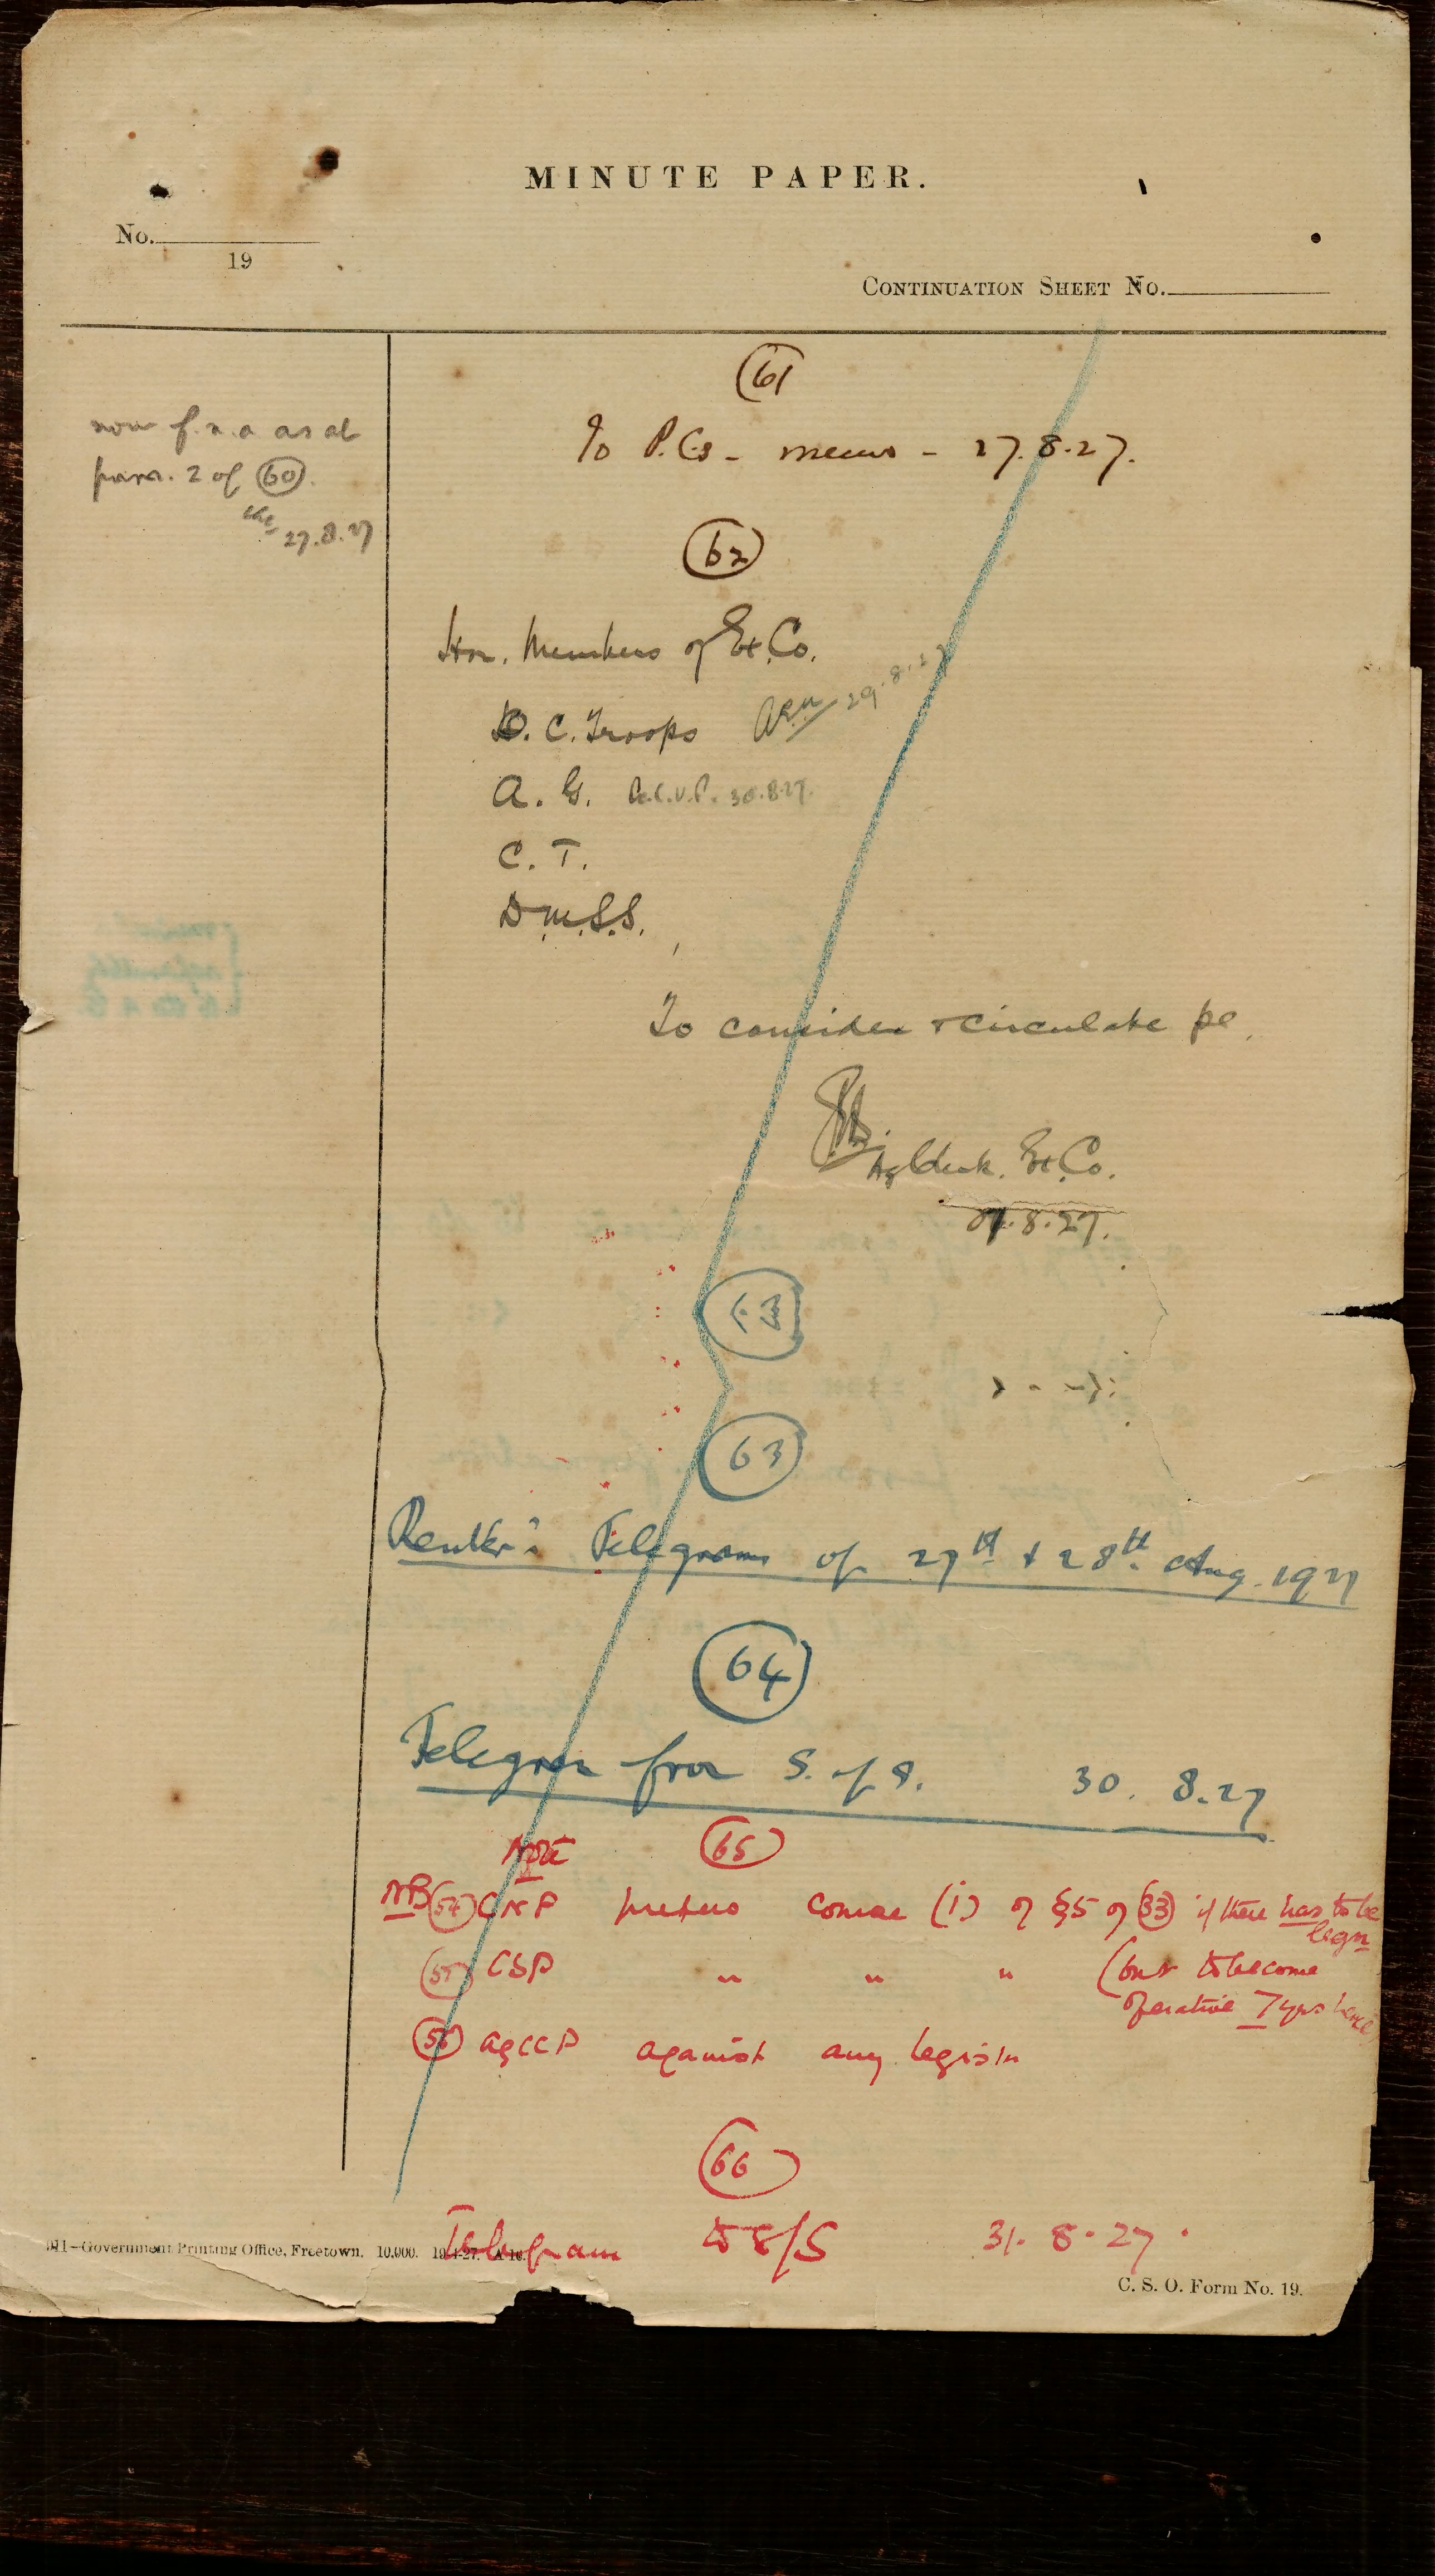 MINUTE PAPER.
No.
19
CONTINUATION SHEET No.
61
To P.Cs - memo - 27.8.27.
now f.n.a as at
para. 2 of 60.
27.8.27
62
Hon. Members of Ex.Co.
O.C. Troops 29.8.27
A.G. 30.8.27.
C.T.
D.M.S.S.
To consider & circulate pe.
Ag Clerk. Ex.Co.
8.27.
63
63
Reuter's Telegrams of 27th & 28th Aug. 1927
64
Telegram from S. of S. 30.8.27
Note 65
NB 54 CNP prefers course (i) of §5 of 33 if there has to be
legn
55 CSP " " " (but to become
operative 7 yrs hence)
56 agCCP against any legisln
66
Telegram to S/S 31.8.27.
911-Government Printing Office, Freetown. 10,000. 19-4-27. A 16.
C. S. O. Form No. 19.